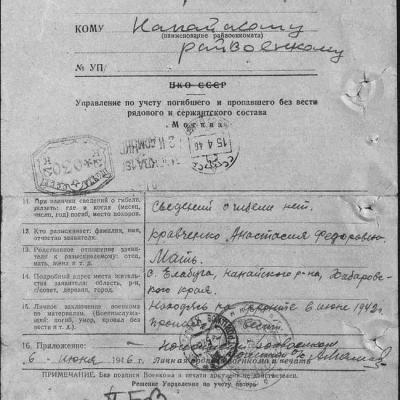 КОМУ Нанайскому
(наименование райвоенкомата)
райвоенкому
№ УП/
НКО СССР
Управление по учету погибшего и пропавшего без вести
рядового и сержантского состава
Москва
15 4 46
11. При наличии сведений о гибели,
указать: где и когда (месяц,
число, год) погиб, место похорон.
Сведений о гибели нет.
12. Кто разыскивает: фамилия, имя,
отчество заявителя.
Кравченко Анастасия Федоровна
13. Родственное отношение заявителя
к разыскиваемому: отец,
мать, жена и т. д.
Мать.
14. Подробный адрес места жительства
заявителя: область, р-н,
с/совет, деревня, город.
с. Елабуга, Нанайского р-на, Хабаровского
края.
15. Личное заключение военкома
по материалам. (Военнослужащий:
погиб, умер, пропал
без вести и т. д.)
Находясь на фронте в июне 1942г
пропал вести
16. Приложение:
6 июня 1946 г. Личная подпись военкома и печать
ПРИМЕЧАНИЕ. Без подписи Военкома и печати анкета недействительна.
Решение Управления по учету потерь